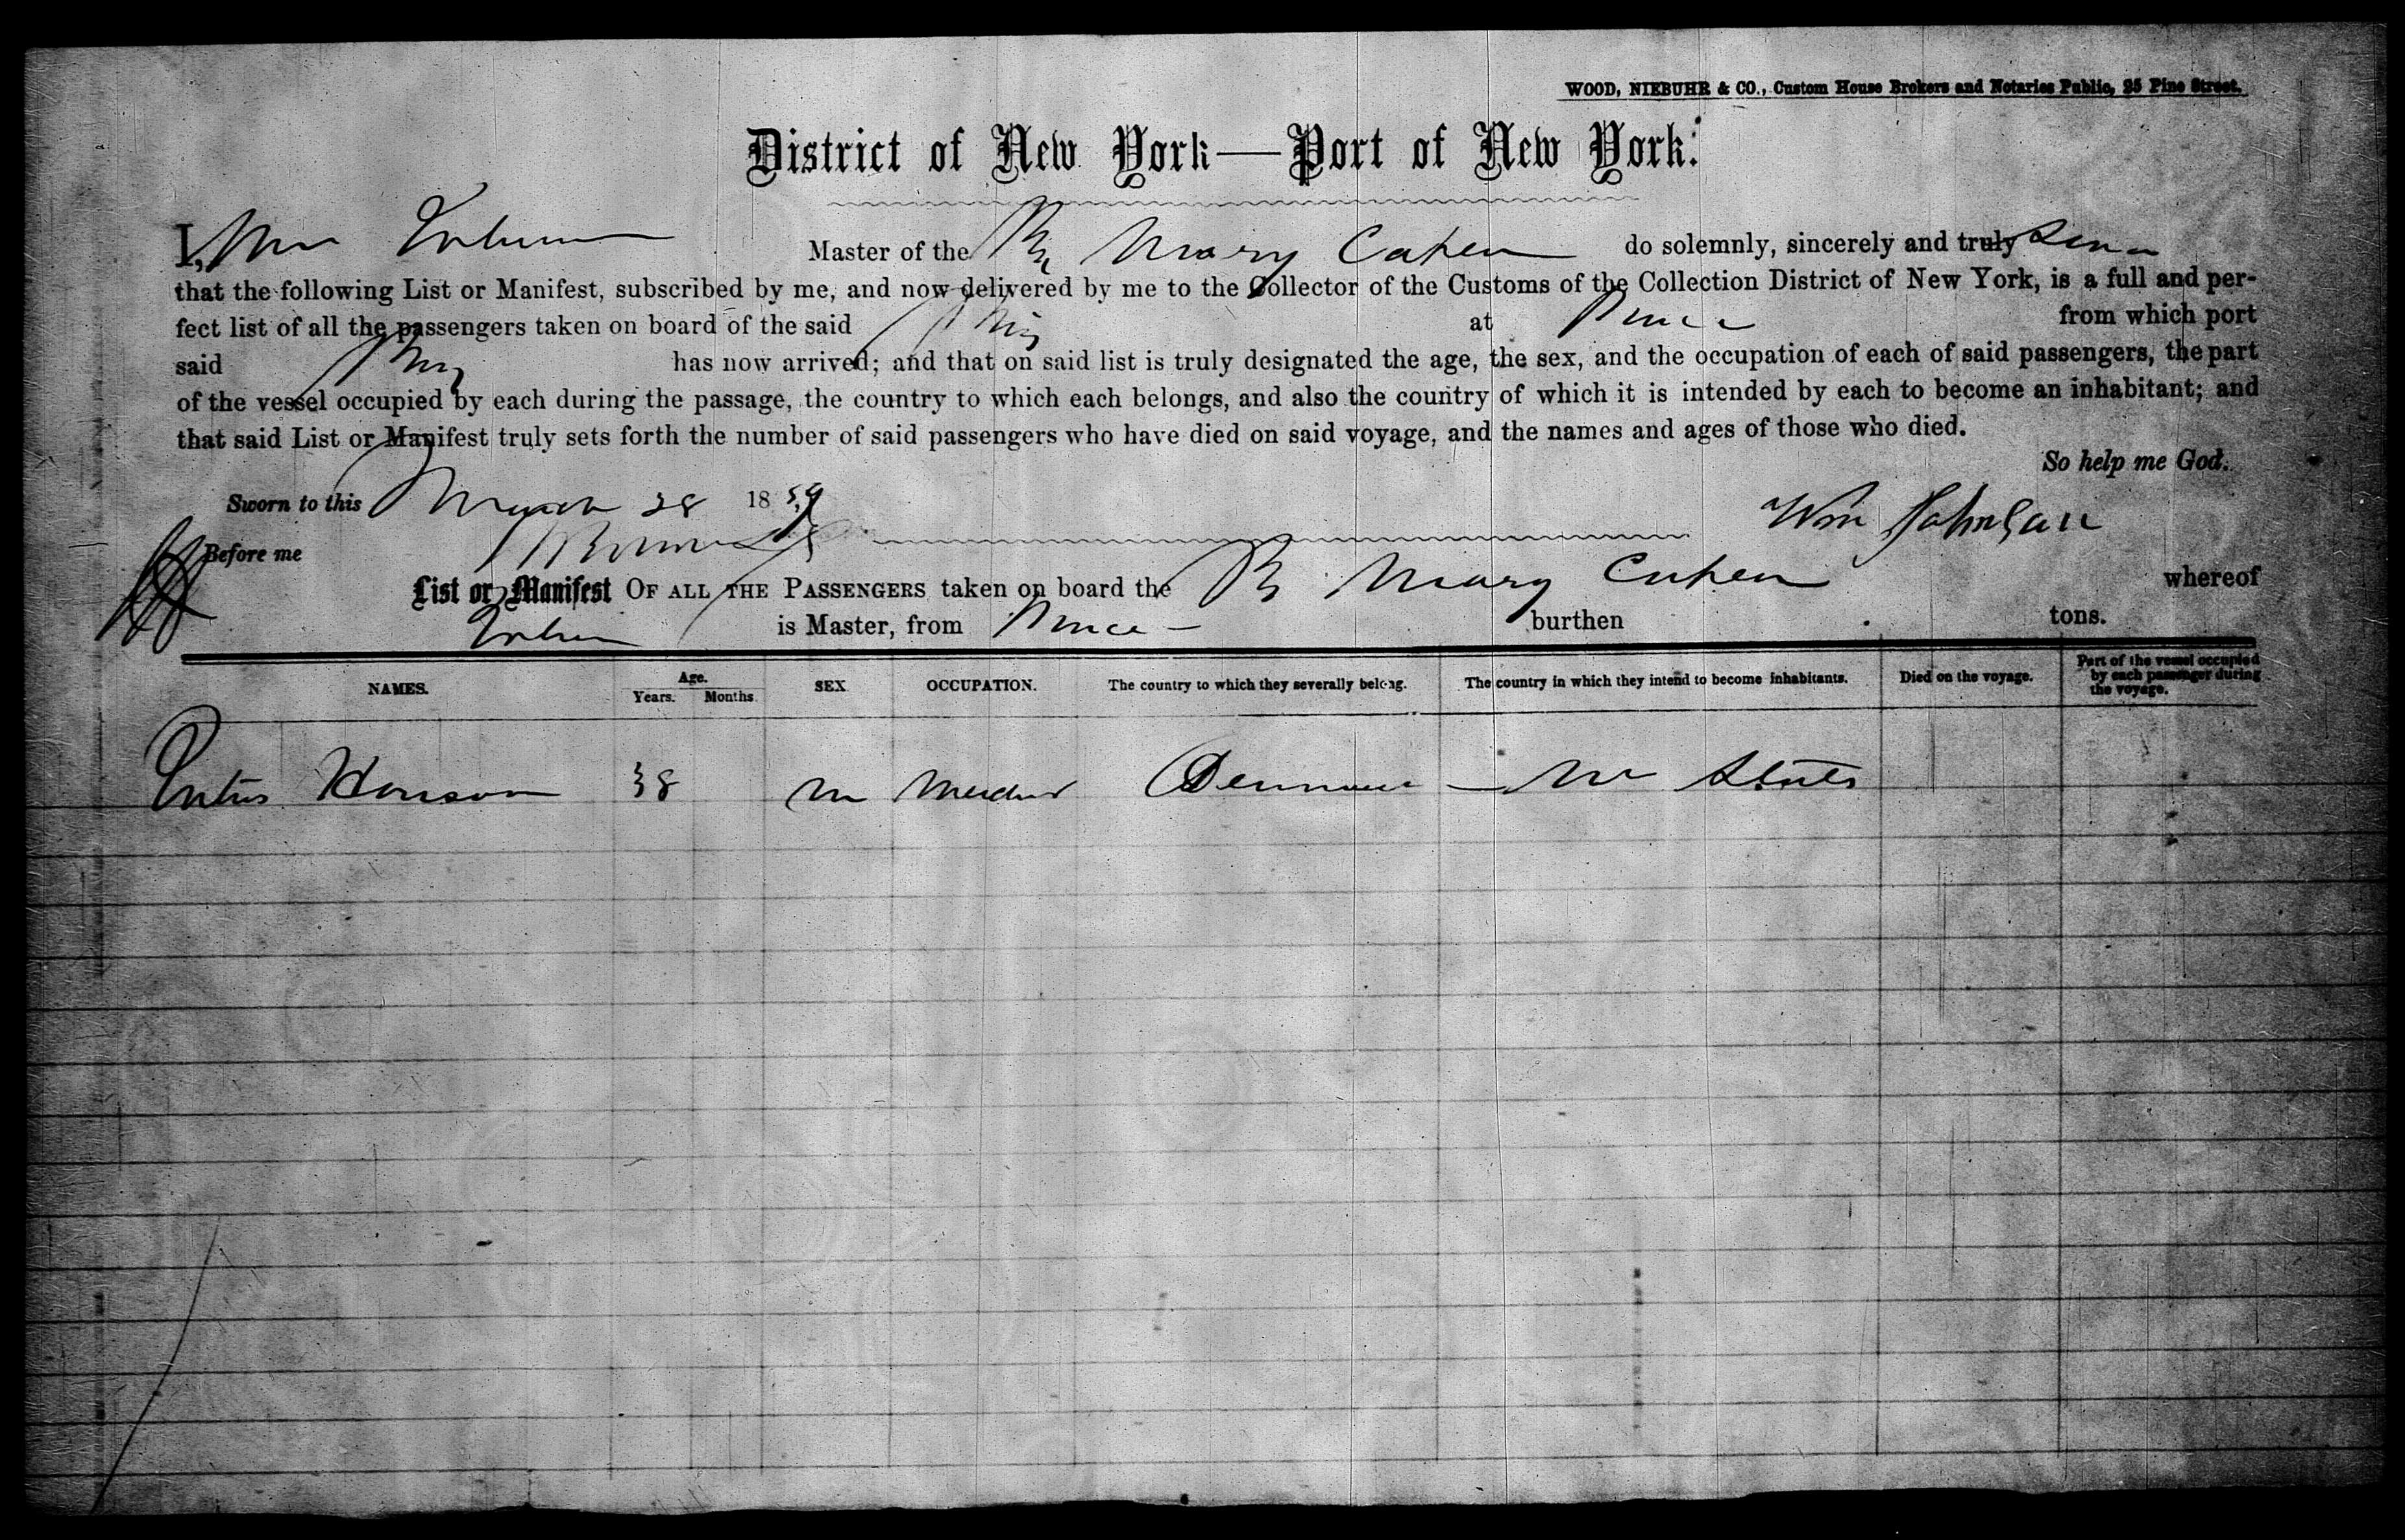 WOOD, NIEBUHR & CO., Custom House Brokers and Notaries Public, 25 Pine Street.
District of New York—Port of New York.
I, Wm Johnson Master of the Br Mary Capen do solemnly, sincerely and truly swear
that the following List or Manifest, subscribed by me, and now delivered by me to the Collector of the Customs of the Collection District of New York, is a full and per-
fect list of all the passengers taken on board of the said Brig at Ponce from which port
said Brig has now arrived; and that on said list is truly designated the age, the sex, and the occupation of each of said passengers, the part
of the vessel occupied by each during the passage, the country to which each belongs, and also the country of which it is intended by each to become an inhabitant; and
that said List or Manifest truly sets forth the number of said passengers who have died on said voyage, and the names and ages of those who died.
So help me God.
Sworn to this March 28 1859
Wm Johnson
Before me
List or Manifest OF ALL THE PASSENGERS taken on board the Br Mary Capen whereof
Johnson is Master, from Ponce burthen tons.
NAMES. Age. Years. Months. SEX OCCUPATION. The country to which they severally belong. The country in which they intend to become inhabitants. Died on the voyage. Part of the vessel occupied by each passenger during the voyage.
38 M States